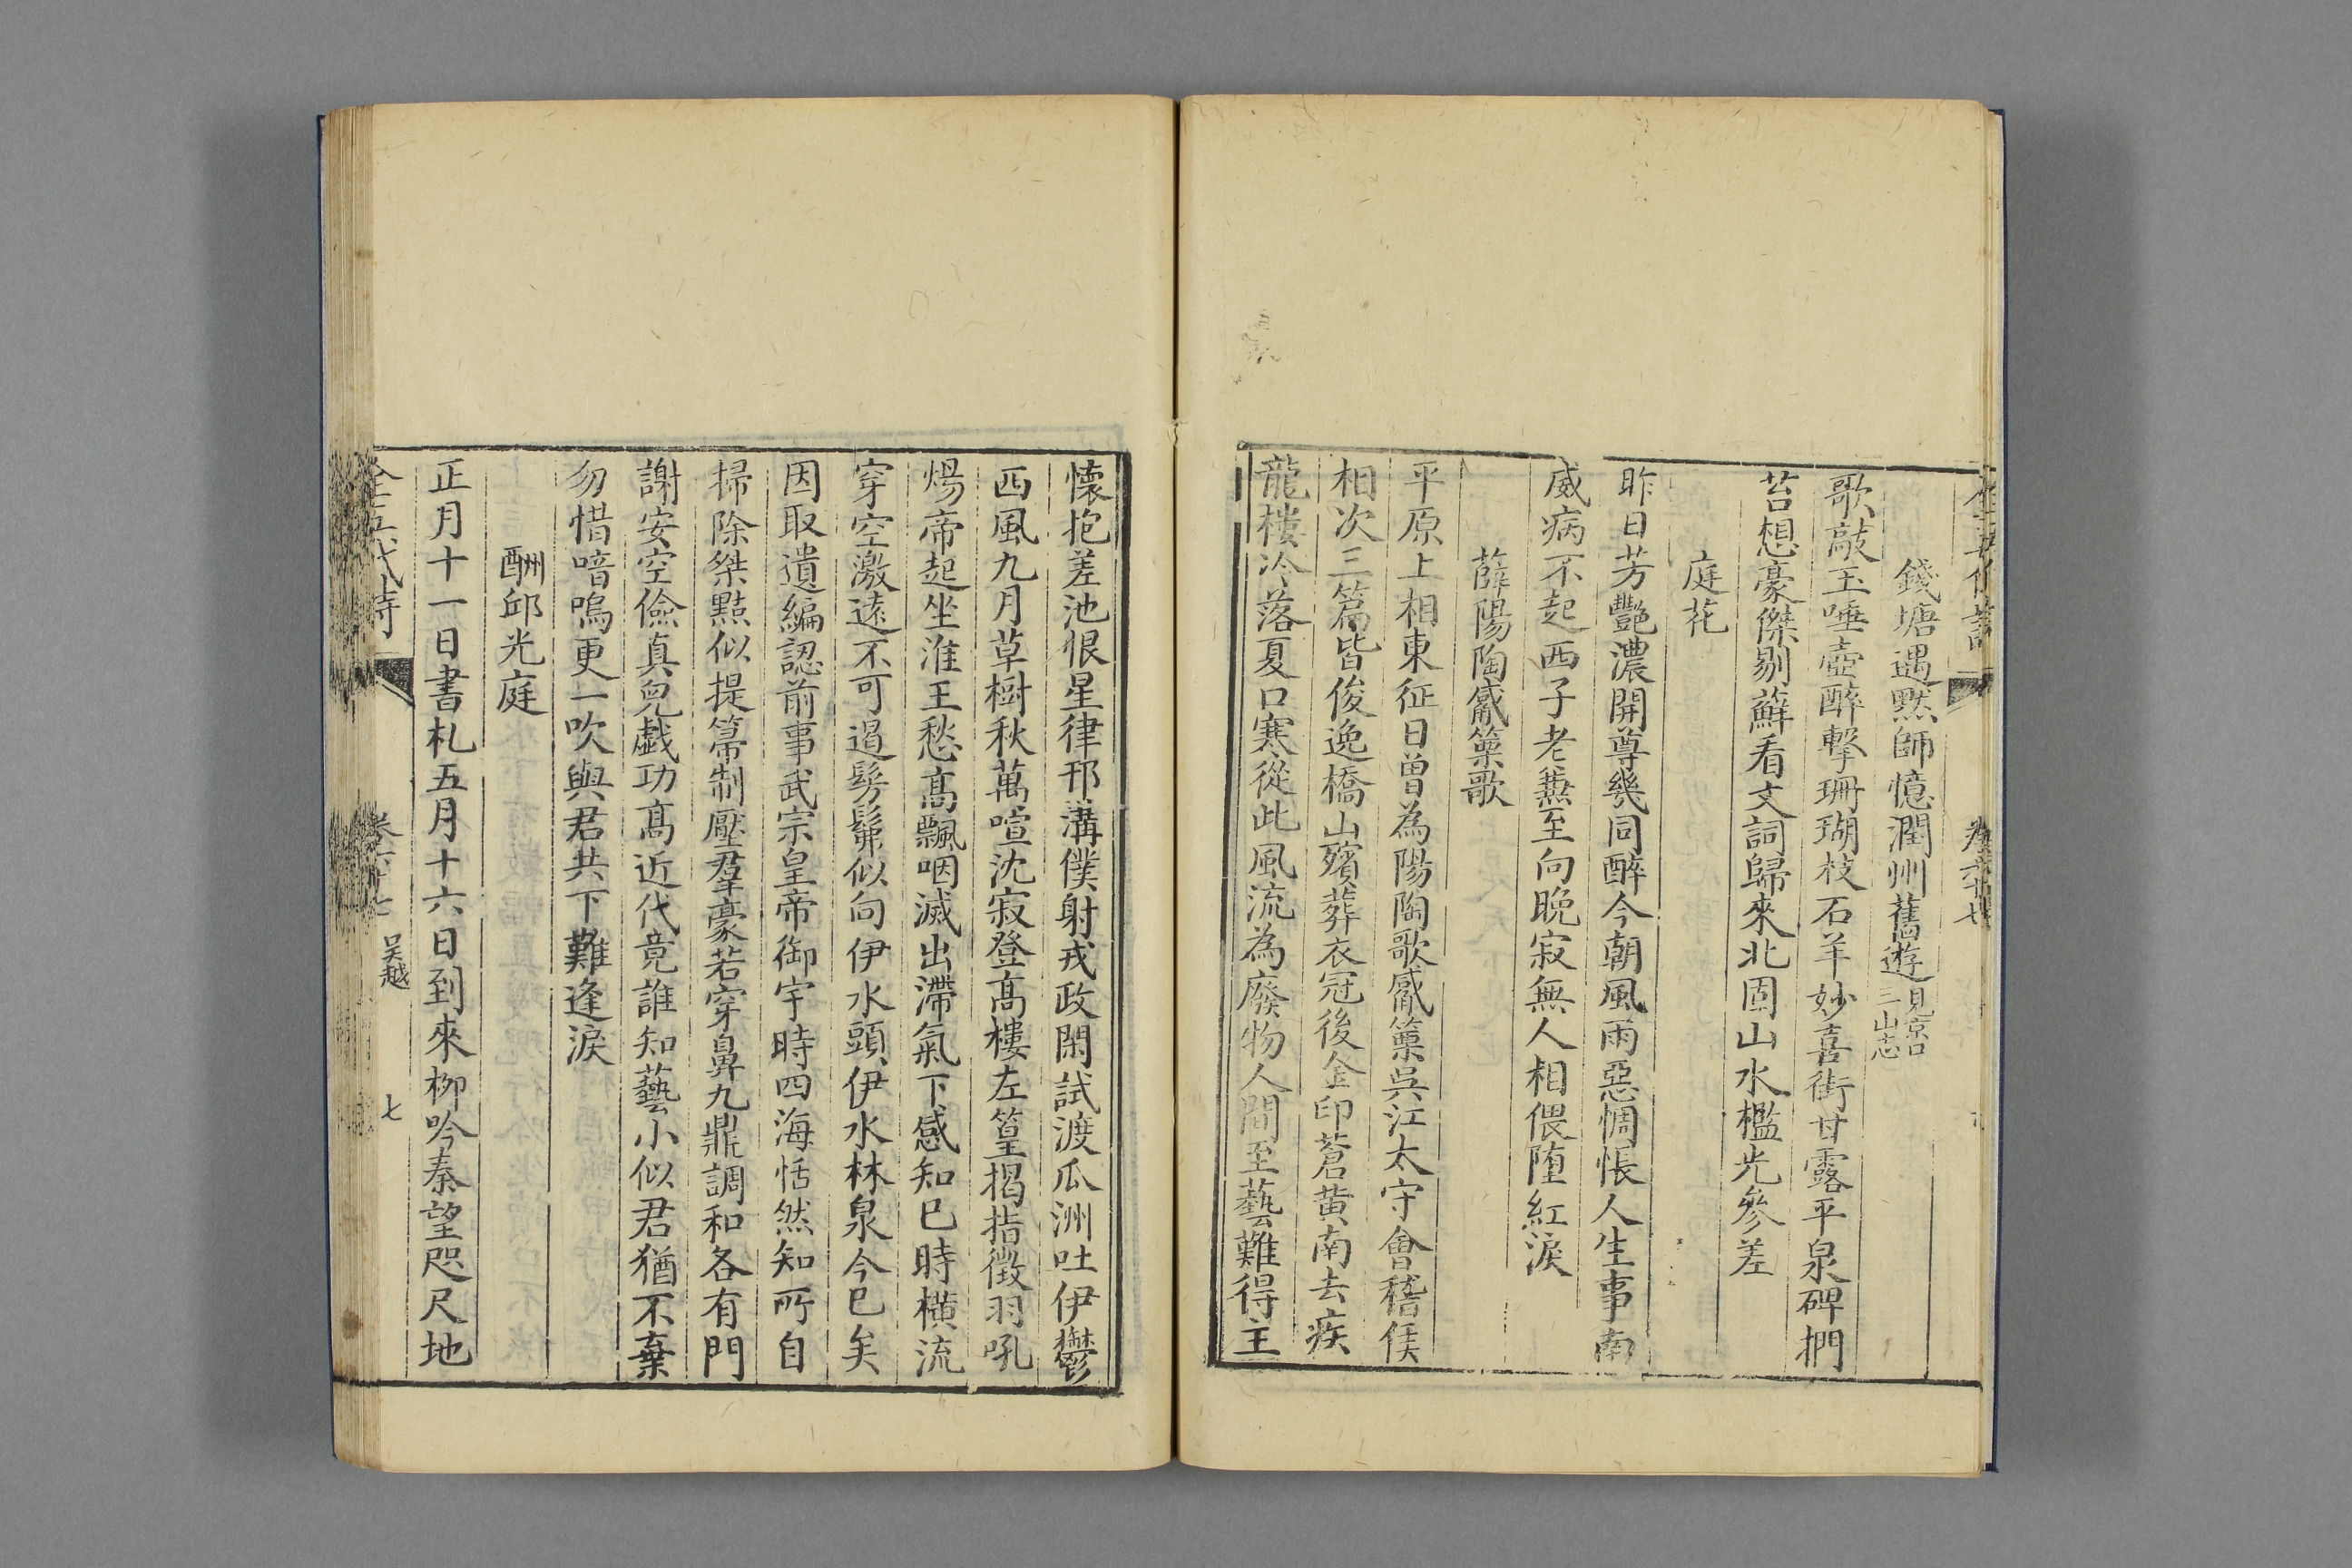 錢塘遇黙師憶潤州舊遊見京口三山志
歌敲玉唾壺醉擊珊瑚枝石羊妙喜街甘露平泉碑捫
苔想豪傑剔蘚看文詞歸來北固山水檻光參差
庭花
昨日芳艷濃開尊幾同醉今朝風雨惡惆悵人生事南
威病不起西子老兼至向晚寂無人相偎墮紅淚
薛陽陶觱篥歌
平原上相東征日曽為陽陶歌觱篥吳江太守會稽侯
相次三篇皆俊逸橋山殯葬衣冠後金印蒼黃南去疾
龍樓冷落夏口寒從此風流為廢物人間至藝難得主
懷抱差池恨星律邗溝僕射戎政閑試渡瓜洲吐伊鬱
西風九月草樹秋萬喧沈寂登髙樓左篁揭指徵羽吼
煬帝起坐淮王愁髙飄咽滅出滯氣下感知已時橫流
穿空激遠不可遏髣髴似向伊水頭伊水林泉今已矣
因取遺編認前事武宗皇帝御宇時四海恬然知所自
掃除桀黠似提箒制壓羣豪若穿鼻九鼎調和各有門
謝安空儉真兒戱功髙近代竟誰知藝小似君猶不棄
勿惜喑嗚更一吹與君共下難逢淚
酬邱光庭
正月十一日書札五月十六日到來栁吟秦望咫尺地
全五代詩 卷六十七 吴越 七